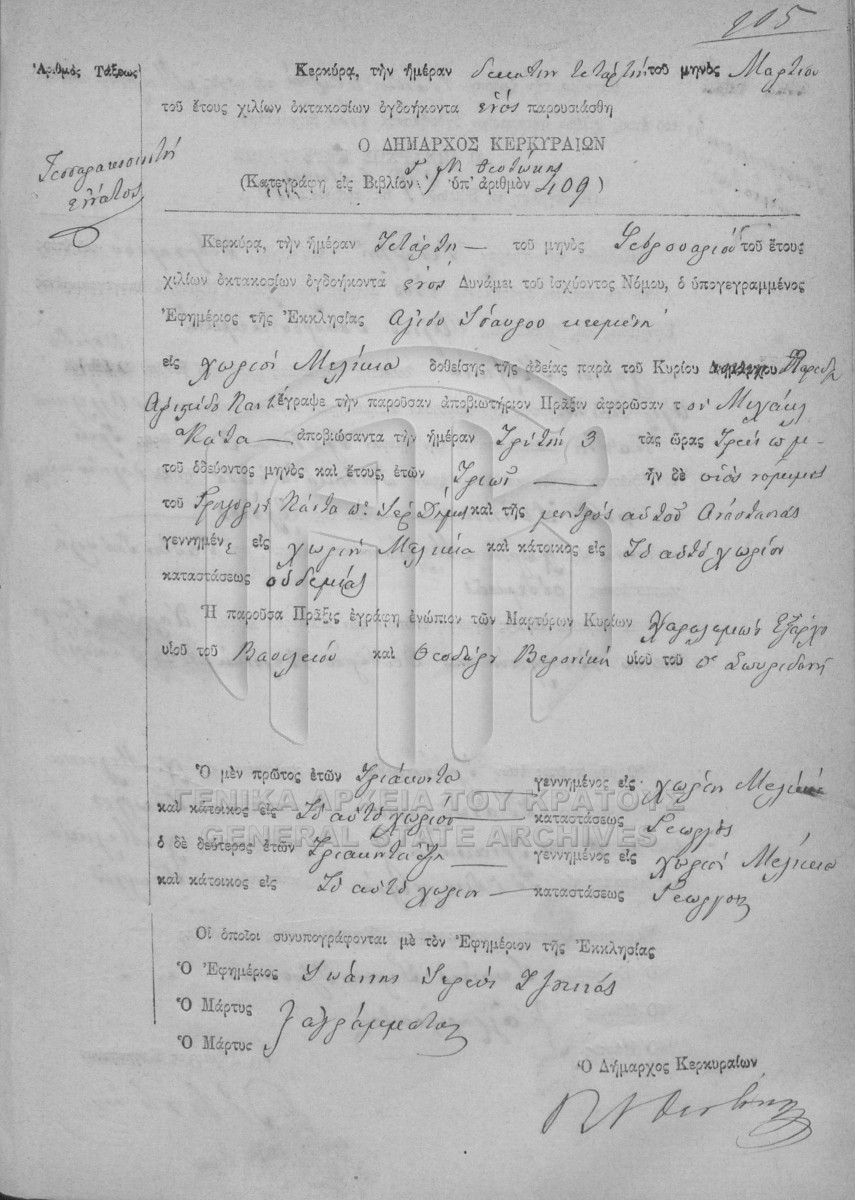 205
Ἀριθμὸς Τάξεως
Τεσσαρακοστή
ἐνάτος
Κερκύρα, τὴν ἡμέραν δεκατην τεταρτην τοῦ μηνὸς Μαρτιου
τοῦ ἔτους χιλίων ὀκτακοσίων ὀγδοήκοντα ενὸς παρουσιάσθη
Ο ΔΗΜΑΡΧΟΣ ΚΕΡΚΥΡΑΙΩΝ
Θεοτόκης
(Κατεγράφη εἰς Βιβλίον ὑπ' ἀριθμὸν 409)
Κερκύρα, τὴν ἡμέραν Τετάρτη τοῦ μηνὸς Φεβρουαριου τοῦ ἔτους
χιλίων ὀκτακοσίων ὀγδοήκοντα ενὸς Δυνάμει τοῦ ἰσχύοντος Νόμου, ὁ ὑπογεγραμμένος
Ἐφημέριος τῆς Ἐκκλησίας Αγίου κειμενη
εἰς χωριον Μελίκια δοθείσης τῆς ἀδείας παρὰ τοῦ Κυρίου Δημάρχου Παρεδρ
ἔγραψε τὴν παροῦσαν ἀποβιωτήριον Πρᾶξιν ἀφορῶσαν τ ον Μιχαὴλ
Κάτα ἀποβιώσαντα τὴν ἡμέραν Τρίτη 3 τὰς ὥρας Τρεῖς π μ
τοῦ ὁδεύοντος μηνὸς καὶ ἔτους, ἐτῶν Τριῶν ἦν δὲ υἱὸς νομιμος
τοῦ Γρηγορίου Κάτα καὶ τῆς μητρὸς αυτοῦ Αναστασιας
γεννημέν ε εἰς χωριον Μελίκια καὶ κάτοικος εἰς Το αυτὸ χωρίον
καταστάσεως ουδεμίας
Ἡ παροῦσα Πρᾶξις ἐγράφη ἐνώπιον τῶν Μαρτύρων Κυρίων Χαραλαμπου
υἱοῦ τοῦ Βασιλείου καὶ Θεοδώρου Βερονίκη υἱοῦ τοῦ π Σπυριδωνη
Ὁ μὲν πρῶτος ἐτῶν Τριάκοντα γεννημένος εἰς χωρίον Μελίκια
καὶ κάτοικος εἰς Το αυτὸ χωριον καταστάσεως Γεωργὸς
ὁ δὲ δεύτερος ἐτῶν Τριακοντα ἕξη γεννημένος εἰς χωριον Μελίκια
καὶ κάτοικος εἰς Το αυτὸ χωριον καταστάσεως Γεωργος
Οἱ ὁποῖοι συνυπογράφονται μὲ τὸν Ἐφημέριον τῆς Ἐκκλησίας
Ὁ Ἐφημέριος Ιωάννης Ιερεὺς
Ὁ Μάρτυς
αγράμματοι
Ὁ Μάρτυς
Ὁ Δήμαρχος Κερκυραίων
ΓΕΝΙΚΑ ΑΡΧΕΙΑ ΤΟΥ ΚΡΑΤΟΥΣ
GENERAL STATE ARCHIVES